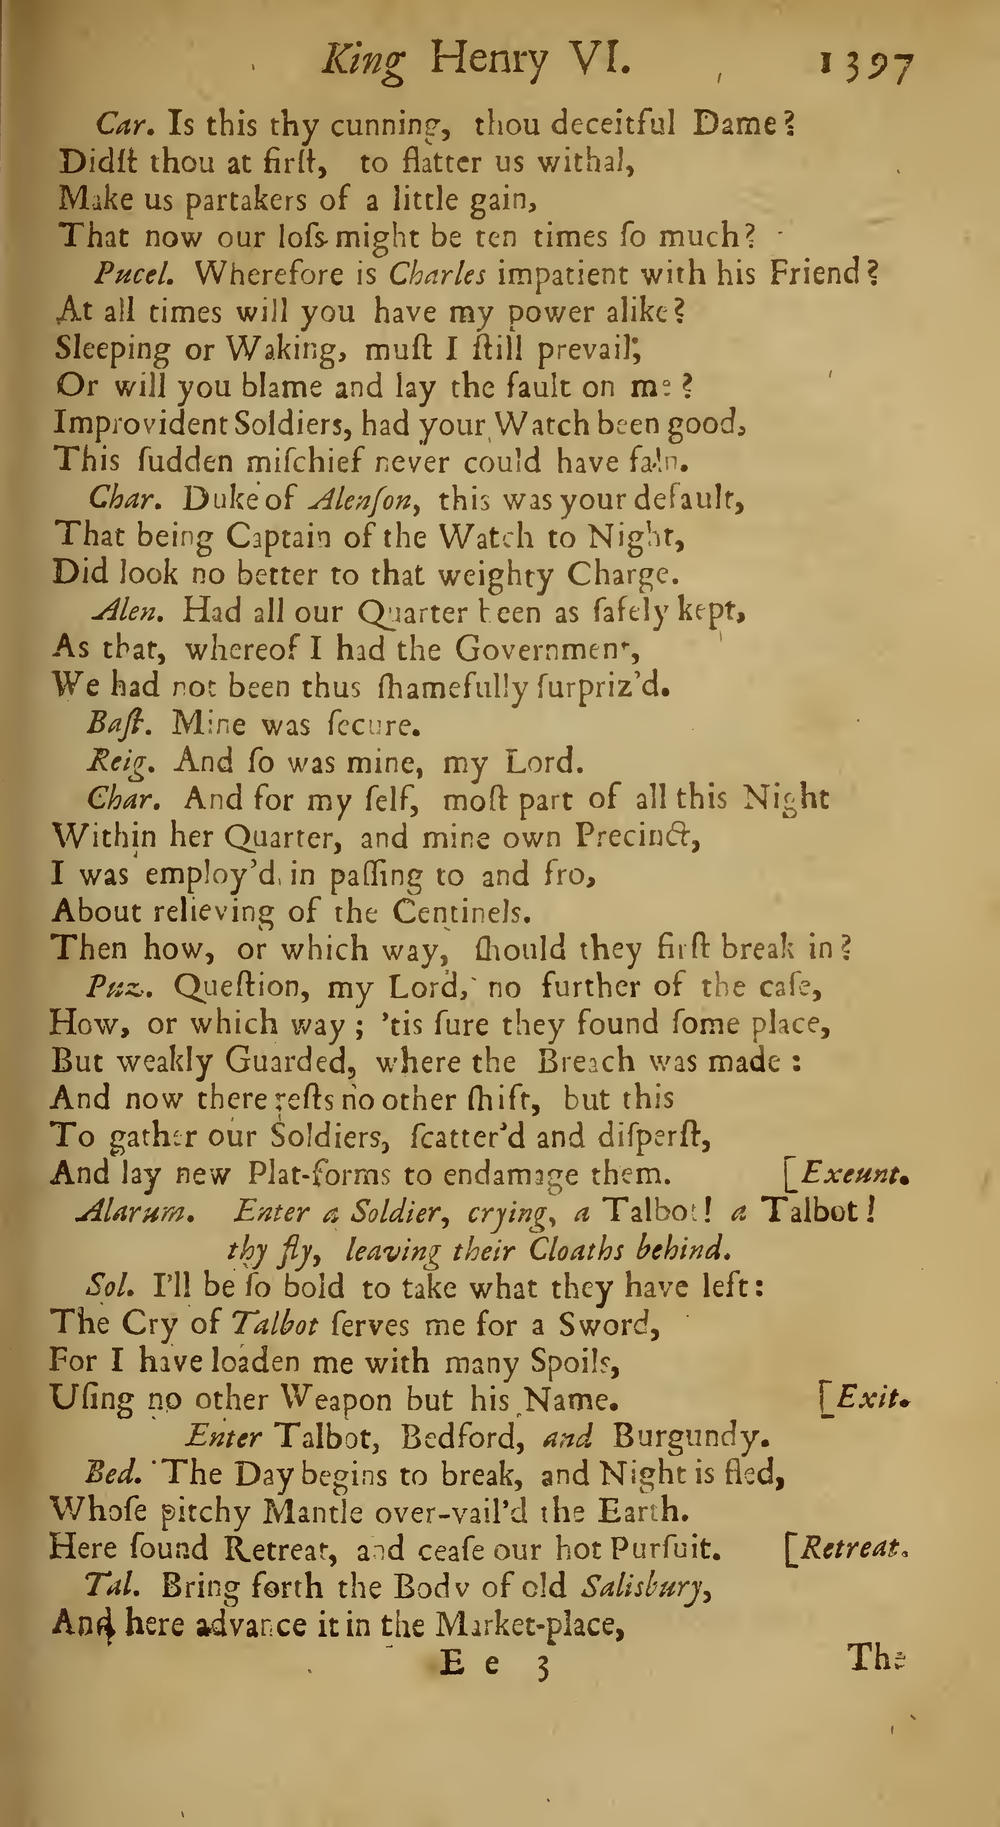 King Henry VI. 1397
Car. Is this thy cunning, thou deceitful Dame?
Didſt thou at firſt, to flatter us withal,
Make us partakers of a little gain,
That now our loſs might be ten times ſo much?
Pucel. Wherefore is Charles impatient with his Friend?
At all times will you have my power alike?
Sleeping or Waking, muſt I ſtill prevail;
Or will you blame and lay the fault on me?
Improvident Soldiers, had your Watch been good,
This ſudden miſchief never could have faln.
Char. Duke of Alenſon, this was your default,
That being Captain of the Watch to Night,
Did look no better to that weighty Charge.
Alen. Had all our Quarter been as ſafely kept,
As that, whereof I had the Government,
We had not been thus ſhamefully ſurpriz'd.
Baſt. Mine was ſecure.
Reig. And ſo was mine, my Lord.
Char. And for my ſelf, moſt part of all this Night
Within her Quarter, and mine own Precinct,
I was employ'd, in paſſing to and fro,
About relieving of the Centinels.
Then how, or which way, ſhould they firſt break in?
Puz. Queſtion, my Lord, no further of the caſe,
How, or which way; 'tis ſure they found ſome place,
But weakly Guarded, where the Breach was made:
And now there reſts no other ſhift, but this
To gather our Soldiers, ſcatter'd and diſperſt,
And lay new Plat-forms to endamage them. [Exeunt.
Alarum. Enter a Soldier, crying, a Talbot! a Talbot!
thy fly, leaving their Cloaths behind.
Sol. I'll be ſo bold to take what they have left:
The Cry of Talbot ſerves me for a Sword,
For I have loaden me with many Spoils,
Uſing no other Weapon but his Name. [Exit.
Enter Talbot, Bedford, and Burgundy.
Bed. The Day begins to break, and Night is fled,
Whoſe pitchy Mantle over-vail'd the Earth.
Here ſound Retreat, and ceaſe our hot Purſuit. [Retreat.
Tal. Bring forth the Body of old Salisbury,
And here advance it in the Market-place,
E e 3 The